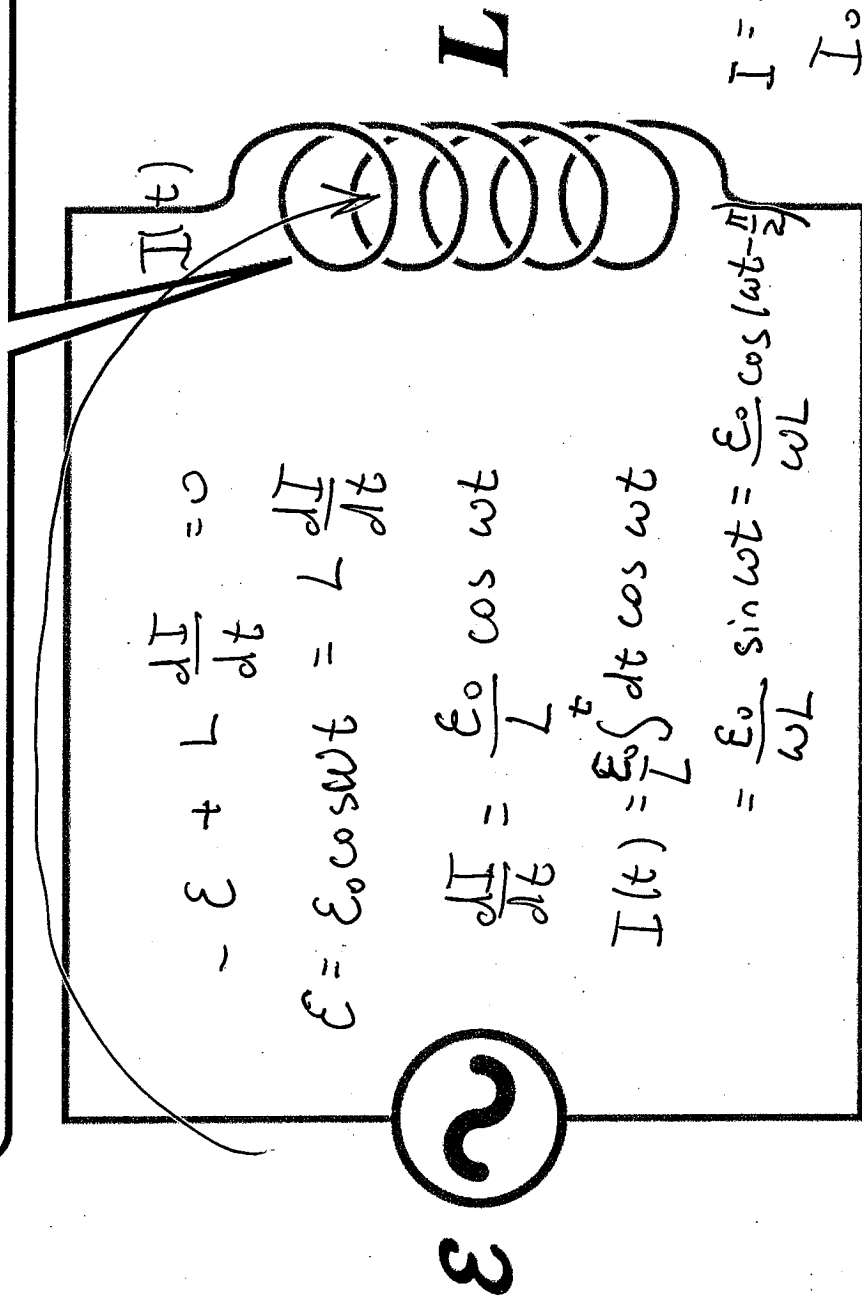 I(t)
L
- ε + L dI/dt = 0
ε = ε₀ cos ωt = L dI/dt
dI/dt = ε₀/L cos ωt
I(t) = ε₀/L ∫ᵗ dt cos ωt
= ε₀/ωL sin ωt = ε₀/ωL cos (ωt - π/2)
ε
~
I =
I₀